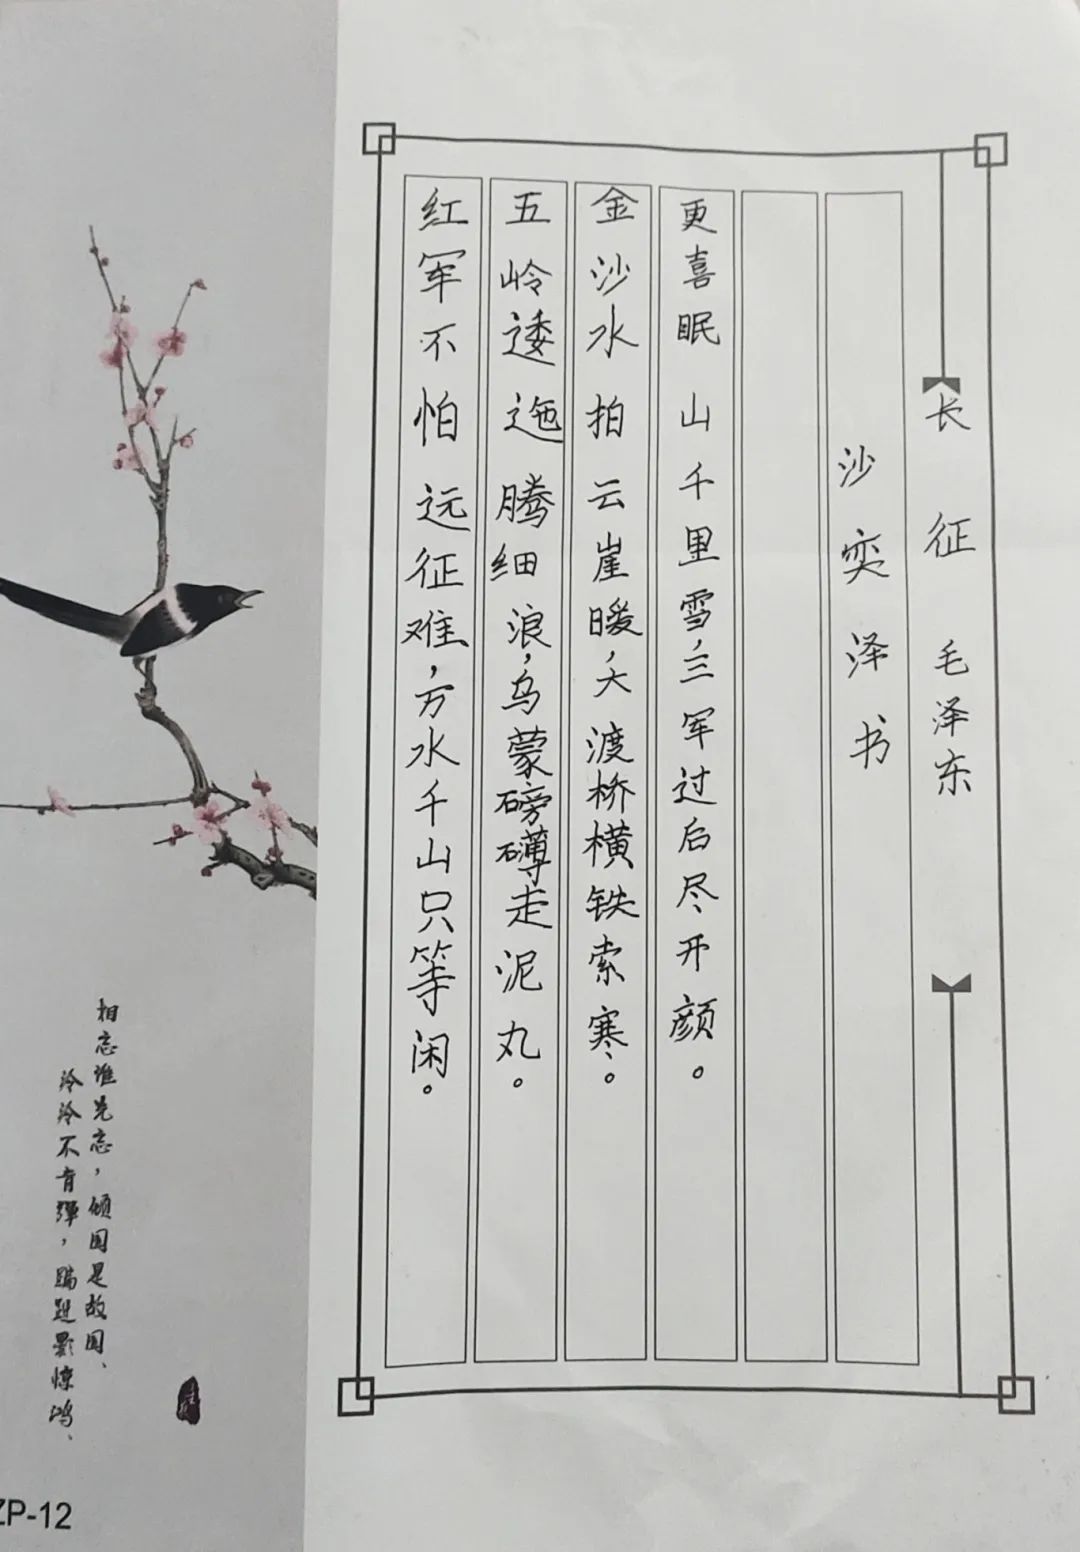 长征 毛泽东
红军不怕远征难,万水千山只等闲。
五岭逶迤腾细浪,乌蒙磅礴走泥丸。
金沙水拍云崖暖,大渡桥横铁索寒。
更喜眠山千里雪,三军过后尽开颜。
沙奕泽书
相忘谁先忘,倾国是故国、
泠泠不肯彈,蹁跹影惊鸿、
ZP-12